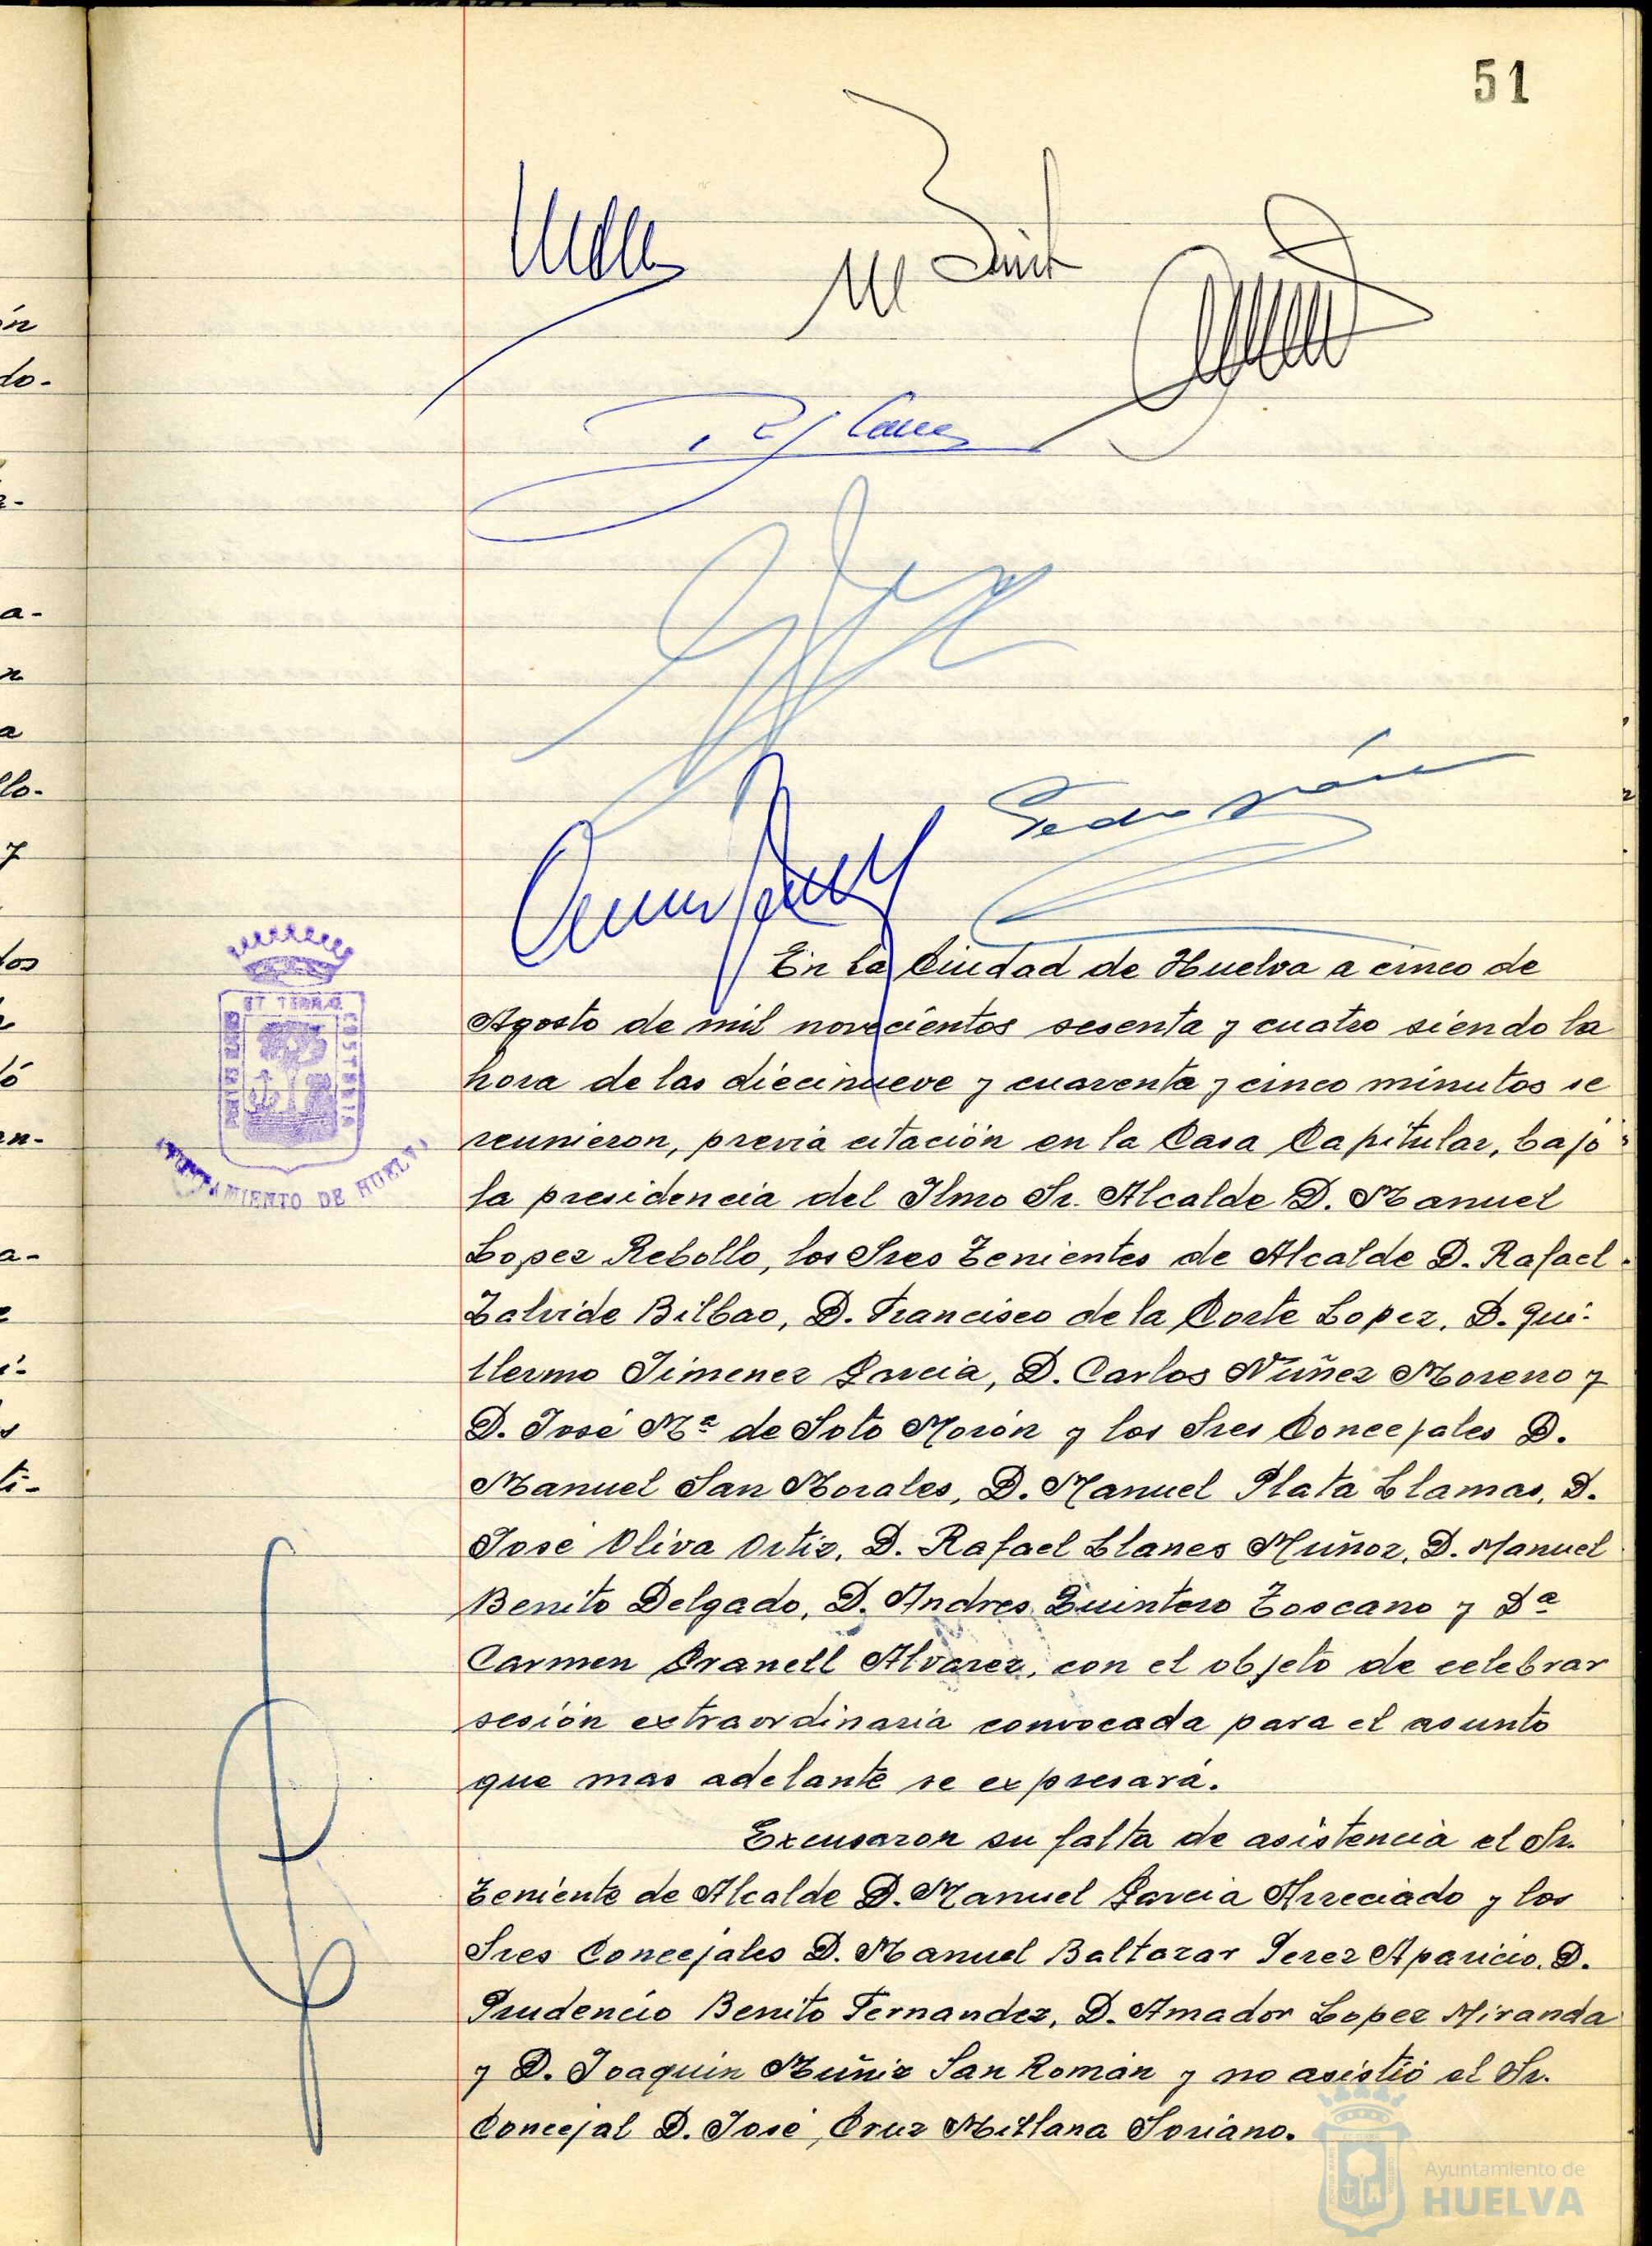 51
En la Ciudad de Huelva a cinco de
Agosto de mil novecientos sesenta y cuatro siendo la
hora de las diecinueve y cuarenta y cinco minutos se
reunieron, previa citación en la Casa Capitular, bajo
la presidencia del Ilmo Sr. Alcalde D. Manuel
Lopez Rebollo, los Sres Tenientes de Alcalde D. Rafael
Zalvide Bilbao, D. Francisco de la Corte Lopez, D. Gui-
llermo Jimenez Garcia, D. Carlos Núñez Moreno y
D. José Mª de Soto Morón y los Sres Concejales D.
Manuel San Morales, D. Manuel Plata Llamas, D.
Jose Oliva Ortiz, D. Rafael Llanes Muñoz, D. Manuel
Benito Delgado, D. Andres Quintero Toscano y Dª
Carmen Granell Alvarez, con el objeto de celebrar
sesión extraordinaria convocada para el asunto
que mas adelante se expresará.
Excusaron su falta de asistencia el Sr.
Teniente de Alcalde D. Manuel Garcia Arreciado y los
Sres Concejales D. Manuel Baltazar Perez Aparicio, D.
Prudencio Benito Fernandez, D. Amador Lopez Miranda
y D. Joaquin Muñiz San Román y no asistió el Sr.
Concejal D. José Cruz Millana Soriano.
AYUNTAMIENTO DE HUELVA
Ayuntamiento de
HUELVA